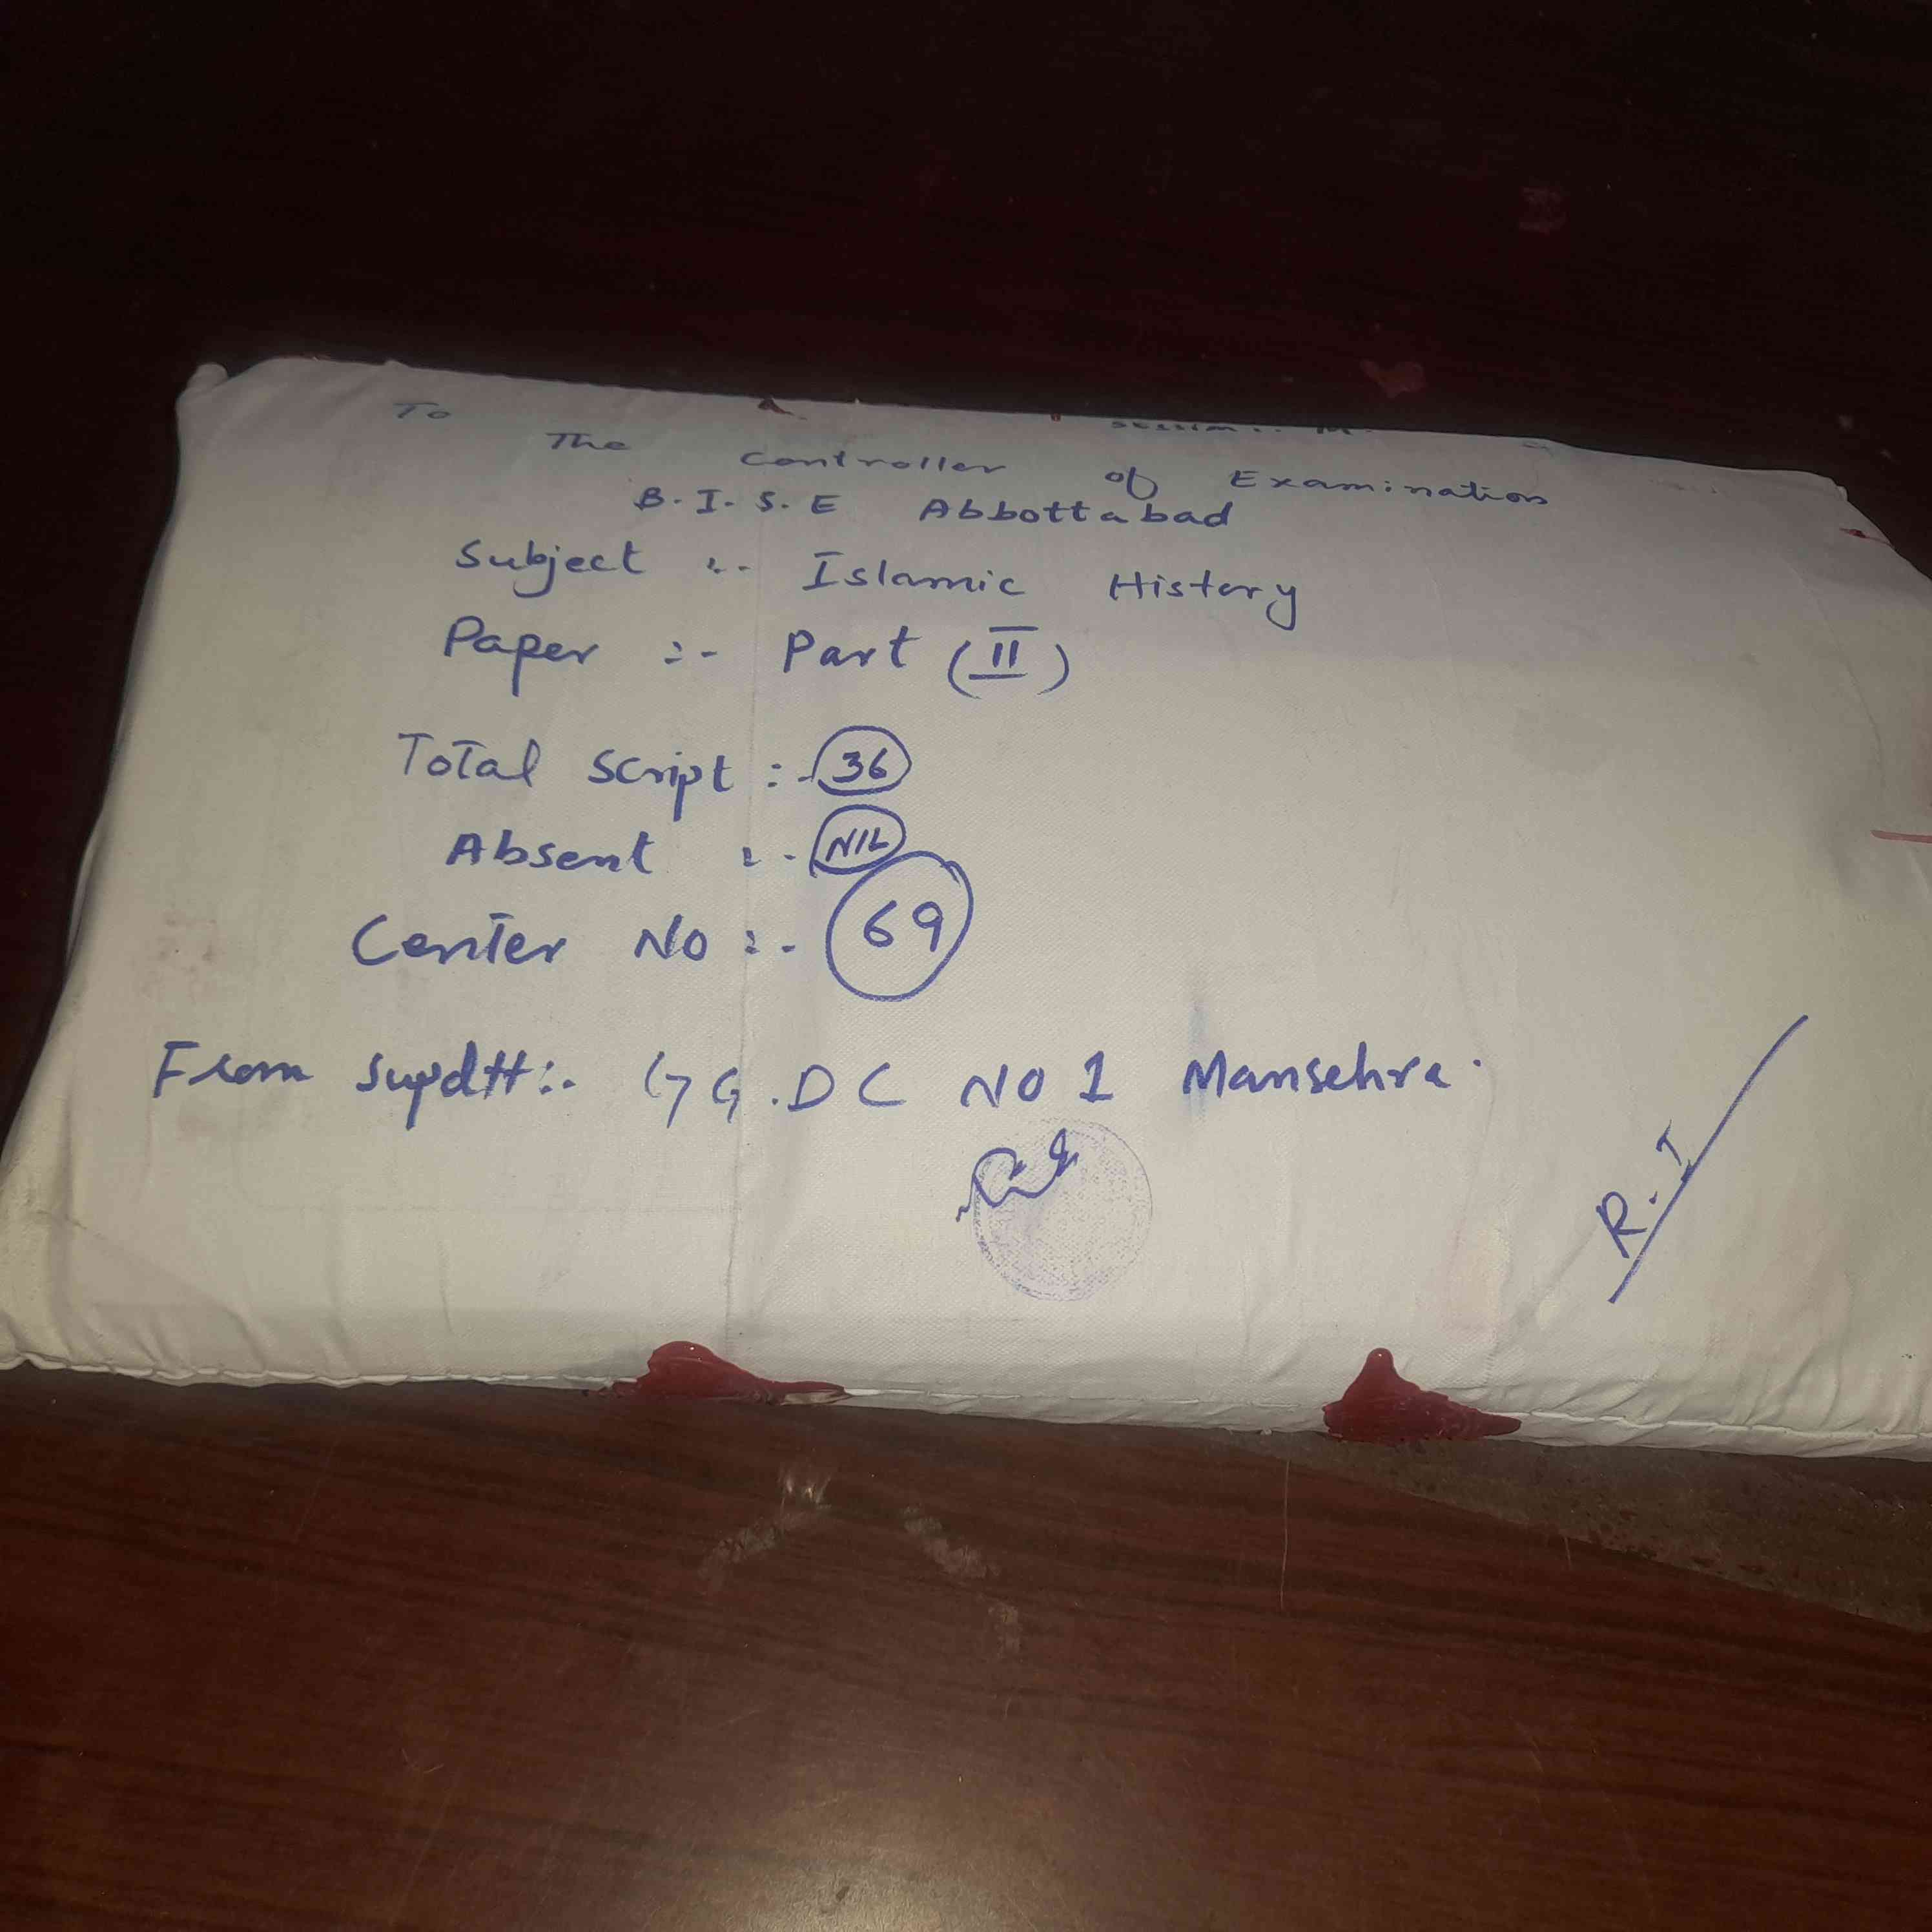 To
The Controller of Examination
B.I.S.E Abbottabad
Subject :- Islamic History
Paper :- Part (II)
Total Script :- 36
Absent :- NIL
Center No :- 69
From Supdtt:- GG.DC NO 1 Mansehra.
R.I